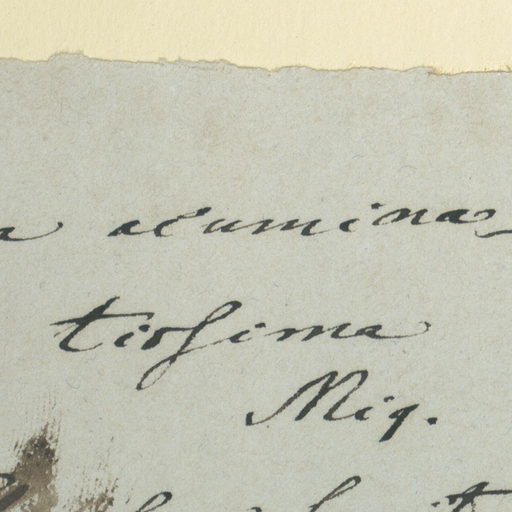 a acumina-
tissima
Miq.